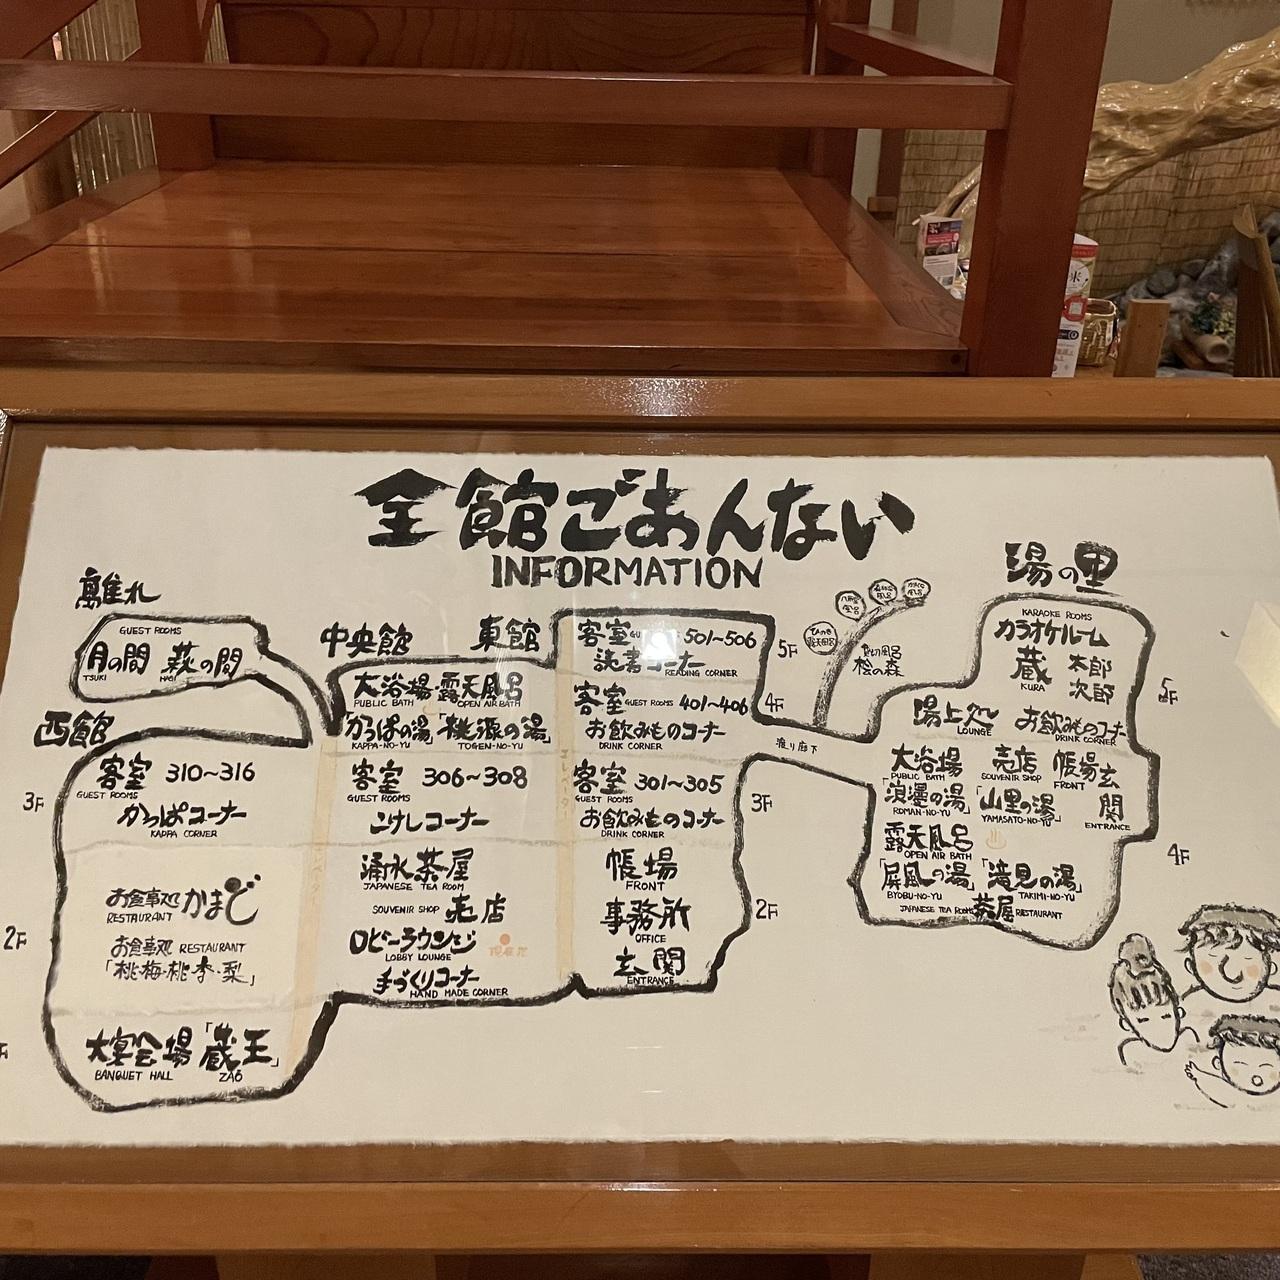 全館ごあんない
INFORMATION
離れ
GUEST ROOMS
月の間 萩の間
TSUKI HAGI
西館
客室 310~316
GUEST ROOMS
かっぱコーナー
KAPPA CORNER
3F
お食事処 かまど
RESTAURANT
お食事処 RESTAURANT
「桃・梅・桃・李・梨」
2F
大宴会場「蔵王」
BANQUET HALL ZAŌ
中央館
大浴場 露天風呂
PUBLIC BATH OPEN AIR BATH
「かっぱの湯」「桃源の湯」
KAPPA-NO-YU TOGEN-NO-YU
客室 306~308
GUEST ROOMS
こけしコーナー
湧水茶屋
JAPANESE TEA ROOM
SOUVENIR SHOP 売店
ロビーラウンジ
LOBBY LOUNGE
現在地
手づくりコーナー
HAND MADE CORNER
エレベーター
東館
客室 GUEST ROOMS 501~506
読書コーナー
READING CORNER
5F
客室 GUEST ROOMS 401~406
4F
お飲みものコーナー
DRINK CORNER
客室 301~305
GUEST ROOMS
お飲みものコーナー
DRINK CORNER
3F
帳場
FRONT
事務所
OFFICE
2F
玄関
ENTRANCE
エレベーター
渡り廊下
貸切風呂
桧の森
ひのき
露天風呂
湯の里
KARAOKE ROOMS
カラオケルーム
蔵 太郎
KURA 次郎
5F
湯上処 お飲みものコーナー
LOUNGE DRINK CORNER
大浴場 売店 帳場 玄関
PUBLIC BATH SOUVENIR SHOP FRONT ENTRANCE
「浪漫の湯」「山里の湯」
ROMAN-NO-YU YAMASATO-NO-YU
露天風呂
OPEN AIR BATH
4F
「屏風の湯」「滝見の湯」
BYOBU-NO-YU TAKIMI-NO-YU
JAPANESE TEA ROOM 茶屋 RESTAURANT